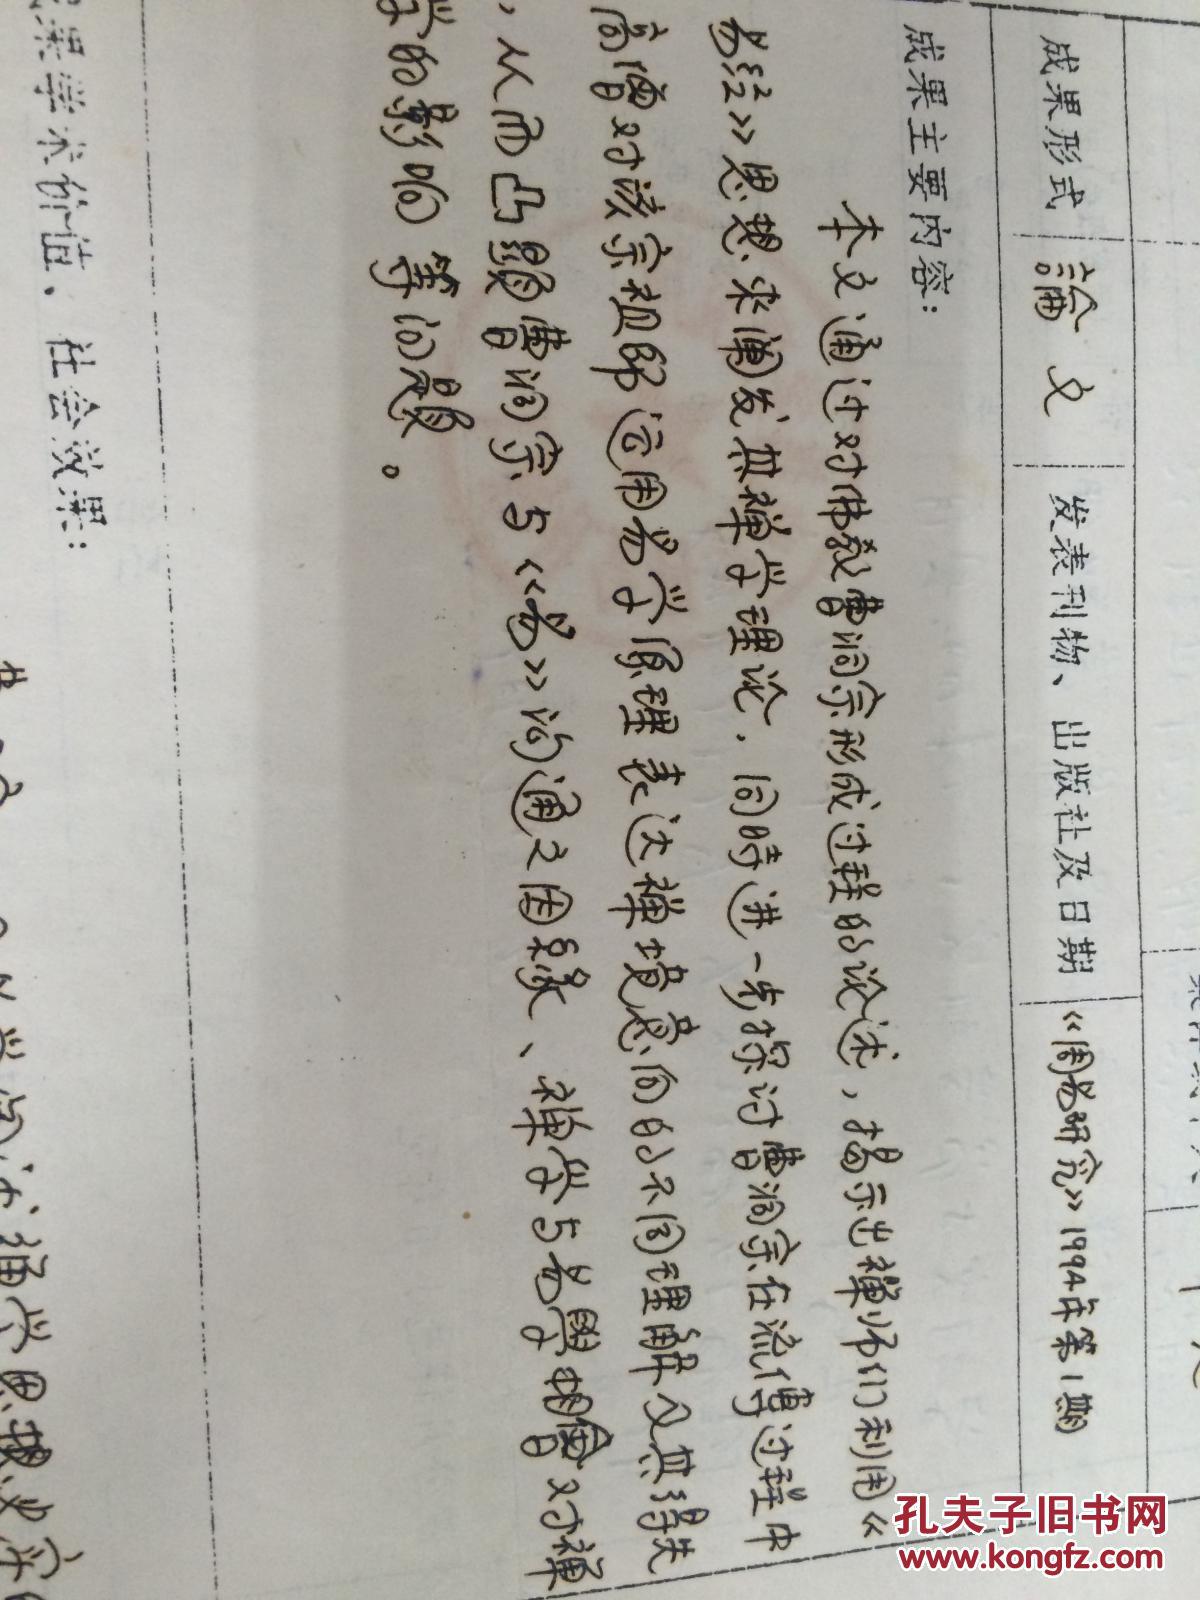 成果形式 論文 发表刊物、出版社及日期 《周易研究》1994年第1期
成果主要内容:
本文通过对佛教曹洞宗形成过程的论述，揭示出禅师们利用《
易经》思想来阐发其禅学理论，同時进一步探讨曹洞宗在流傳过程中
高僧对该宗祖师运用易学原理表达禅境意向的不同理解及其得失
，从而凸顯曹洞宗与《易》沟通之因緣、禅学与易學相會对禅
学的影响等问题。
果学术价值、社会效果:
孔夫子旧书网
www.kongfz.com